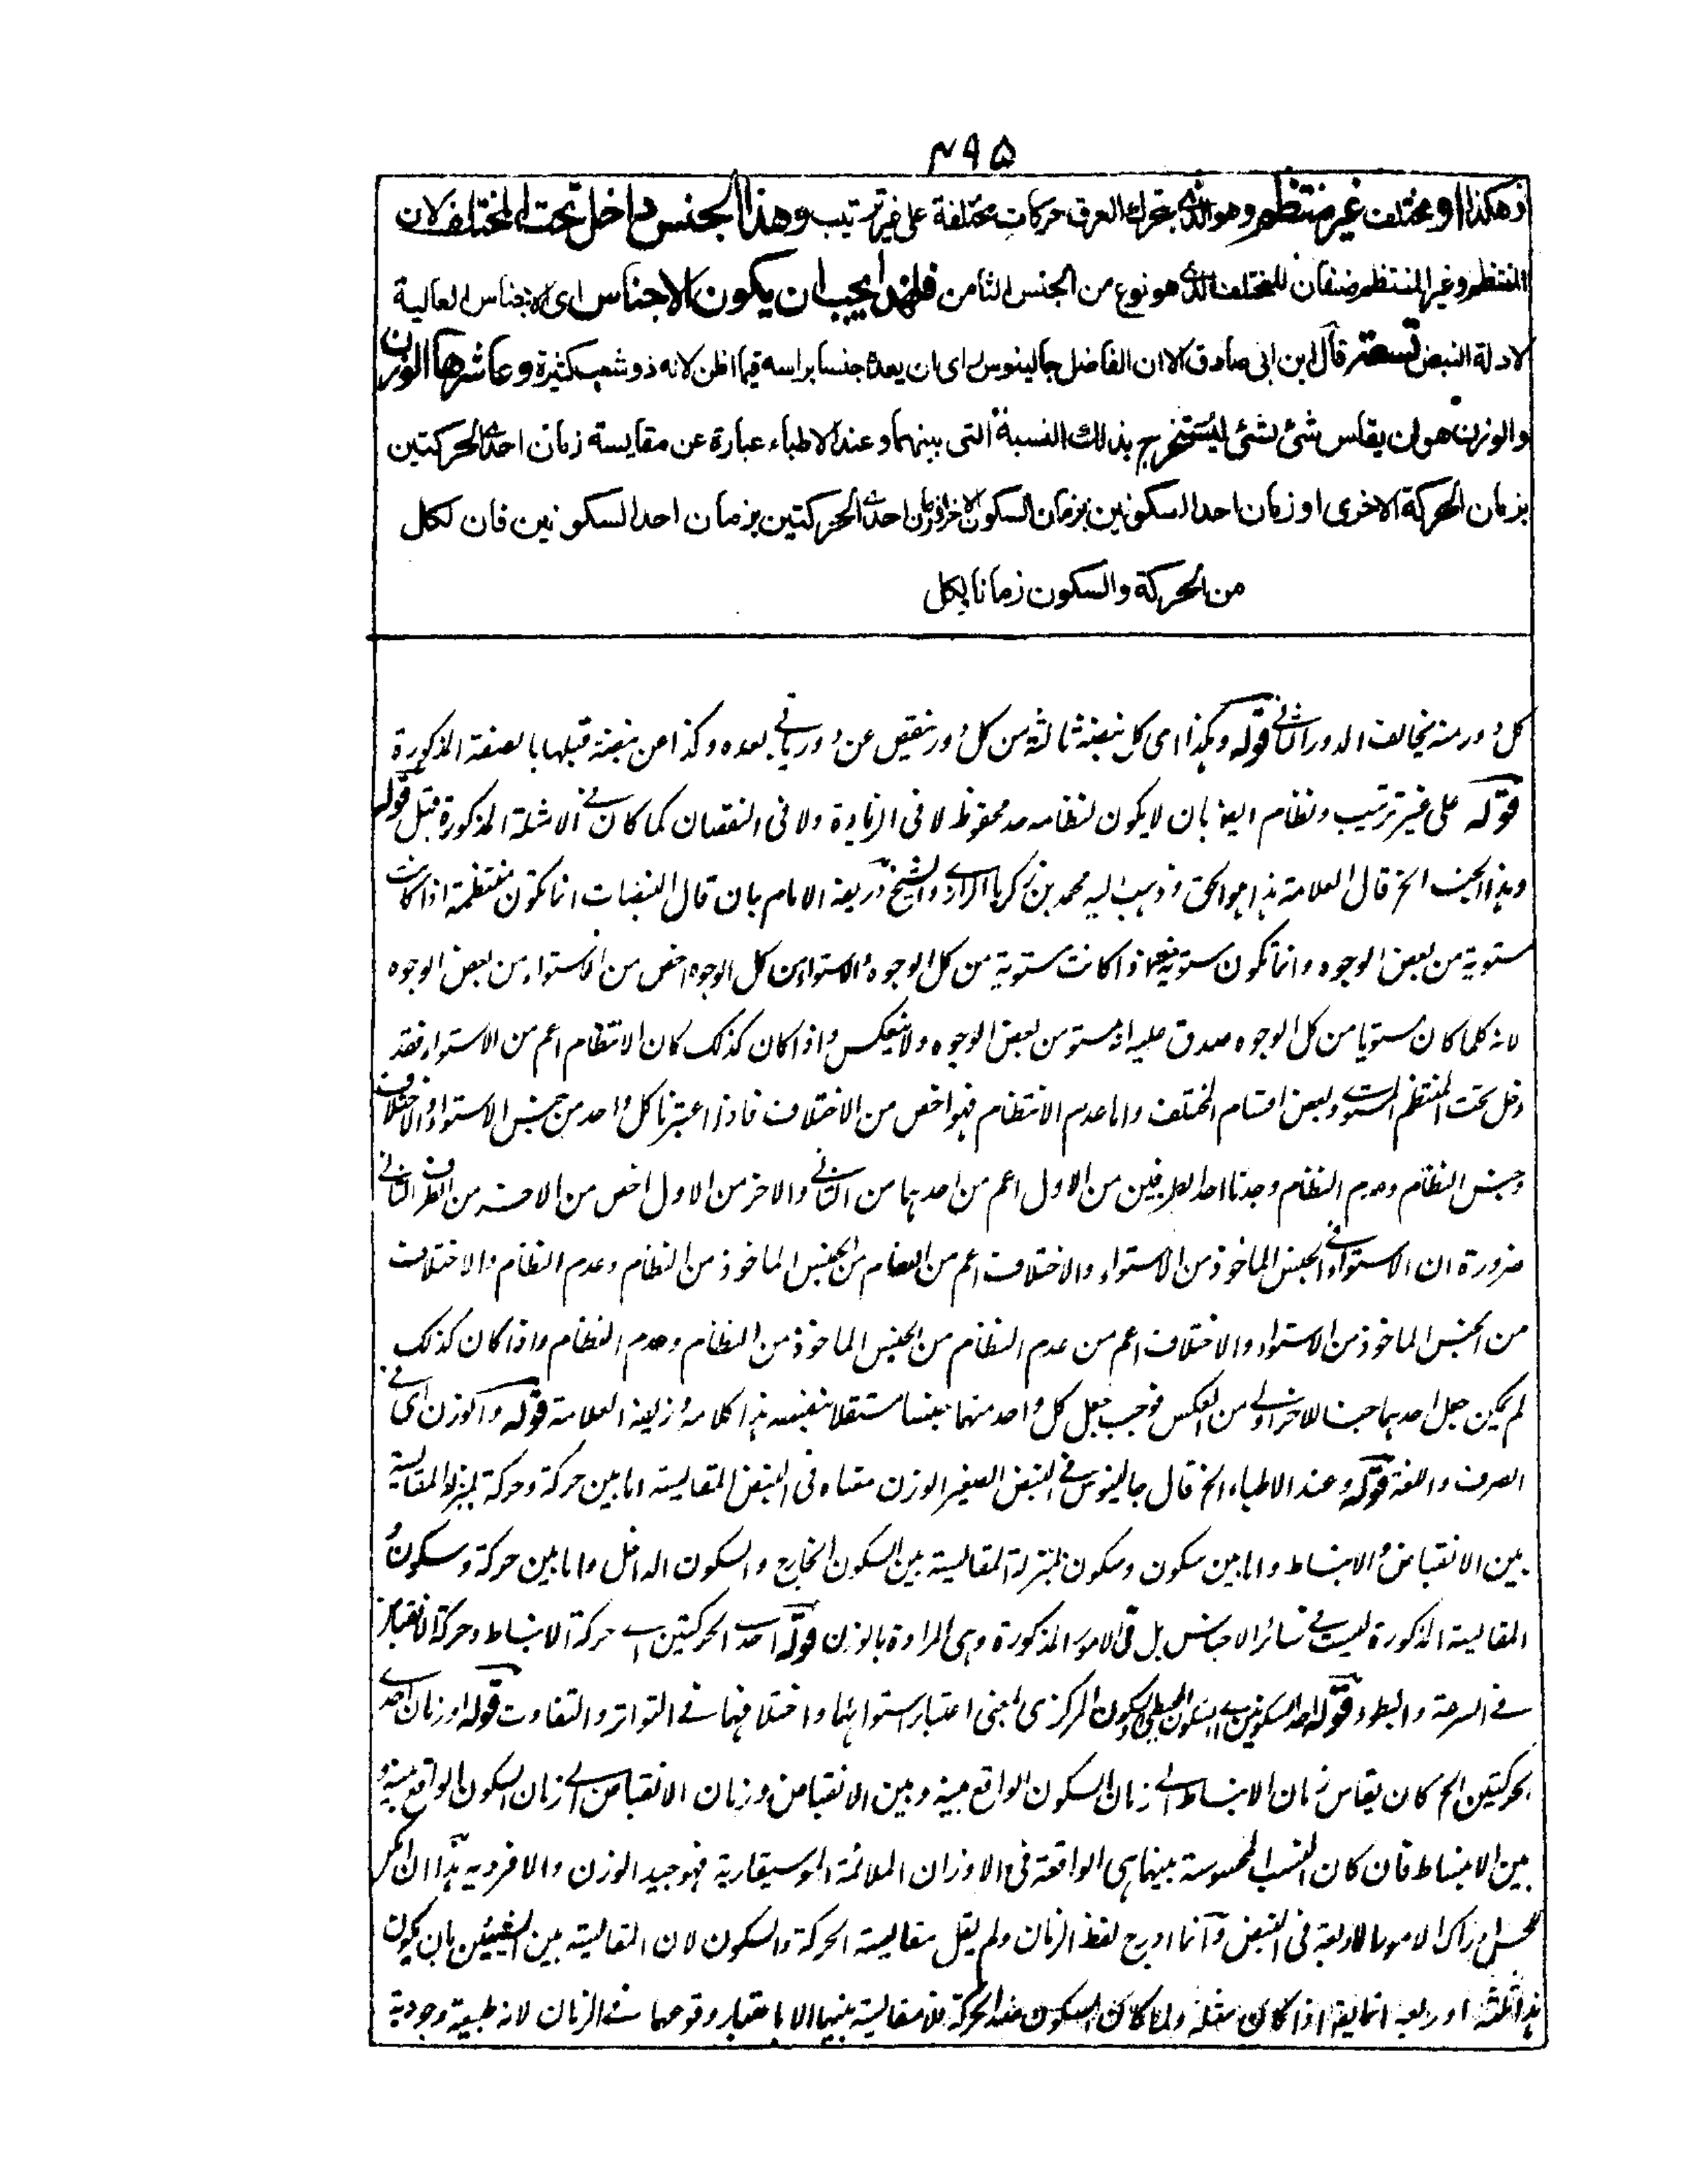 ۴۹۵
هكذا او مختلف غير منتظم وهو الذى يتحرك العرق حركات مختلفة على غير ترتيب وهذا الجنس داخل تحت المختلف لان
المنتظم وغير المنتظم صنفان للمختلف الذى هو نوع من الجنس الثامن فلهذا يجب ان يكون الاجناس اى الاجناس العالية
لادلة النبض تسعة قال ابن ابى صادق الا ان الفاضل جالينوس راى ان يعده جنسا براسه فيما اظن لانه ذو شعب كثيرة وعاشرها الوزن
والوزن هو ان يقاس شئ بشئ ليستخرج بذلك النسبة التى بينهما وعند الاطباء عبارة عن مقايسة زمان احدى الحركتين
بزمان الحركة الاخرى او زمان احد السكونين بزمان السكون الاخر او زمان احدى الحركتين بزمان احد السكونين فان لكل
من الحركة والسكون زمانا لكل
كل دور منه يخالف الدور الثانى قوله وهكذا اى كل نبضة ثالثة من كل دور ينقص عن دور ياتى بعده وكذا عن نبضة قبلها بالصفة المذكورة
قوله على غير ترتيب ونظام ايضا بان لا يكون لنظامه حد محفوظ لا فى الزيادة ولا فى النقصان كما كان فى الامثلة المذكورة قبل قوله
وهذا الجنس الخ قال العلامة هذا هو الحق وذهب اليه محمد بن زكريا الرازى والشيخ وزيفه الامام بان قال النبضات انما تكون منتظمة اذا كانت
مستوية من بعض الوجوه وانما تكون مستوية اذا كانت مستوية من كل الوجوه والاستواء من كل الوجوه اخص من الاستواء من بعض الوجوه
لانه كلما كان مستويا من كل الوجوه صدق عليه انه مستو من بعض الوجوه ولا ينعكس واذا كان كذلك كان الانتظام اعم من الاستواء فقد
دخل تحت المنتظم المستوى وبعض اقسام المختلف واما عدم الانتظام فهو اخص من الاختلاف فاذا اعتبرنا كل واحد من جنس الاستواء والاختلاف
وجنس النظام وعدم النظام وجدنا احد الطرفين من الاول اعم من احدهما من الثانى والاخر من الاول اخص من الاخر من الطرف الثانى
ضرورة ان الاستواء فى الجنس الماخوذ من الاستواء والاختلاف اعم من النظام من الجنس الماخوذ من النظام وعدم النظام والاختلاف
من الجنس الماخوذ من الاستواء والاختلاف اعم من عدم النظام من الجنس الماخوذ من النظام وعدم النظام واذا كان كذلك
لم يكن جعل احدهما جنسا للاخر اولى من العكس فوجب جعل كل واحد منهما جنسا مستقلا بنفسه هذا كلامه وزيفه العلامة قوله والوزن اى فى
العرف واللغة قوله وعند الاطباء الخ قال جالينوس فى النبض الصغير الوزن معناه فى النبض المقايسة اما بين حركة وحركة بمنزلة المقايسة
بين الانقباض والانبساط واما بين سكون وسكون بمنزلة المقايسة بين السكون الخارج والسكون الداخل واما بين حركة وسكون و
المقايسة المذكورة ليست فى سائر الاجناس بل فى الامور المذكورة وهى المرادة بالوزن قوله احدى الحركتين اى حركة الانبساط وحركة الانقباض
فى السرعة والبطوء قوله احد السكونين اى السكون المحيطى والسكون المركزى اعنى اعتبار استوائهما واختلافهما فى التواتر والتفاوت قوله او زمان احدى
الحركتين الخ كان يقاس زمان الانبساط الى زمان السكون الواقع بينه وبين الانقباض وزمان الانقباض الى زمان السكون الواقع بينه و
بين الانبساط فان كان النسب المحسوسة بينهما هى الواقعة فى الاوزان الملائمة الموسيقارية فهو جيد الوزن والا فرديه هذا ان امكن
للحس ادراك الامور الاربعة فى النبض وانما ادرج لفظ الزمان ولم يقل مقايسة الحركة والسكون لان المقايسة بين الشيئين بان يكون
هذا ثلثه او ربعه انما يقع اذا كان مثله ولما كان السكون ضد الحركة فلا مقايسة بينهما الا باعتبار وقوعهما فى الزمان لانه طبيعة وجودية